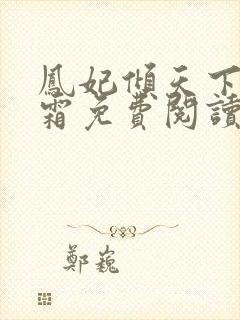 鳳妃傾天下
霜免費閱讀
鄭巍